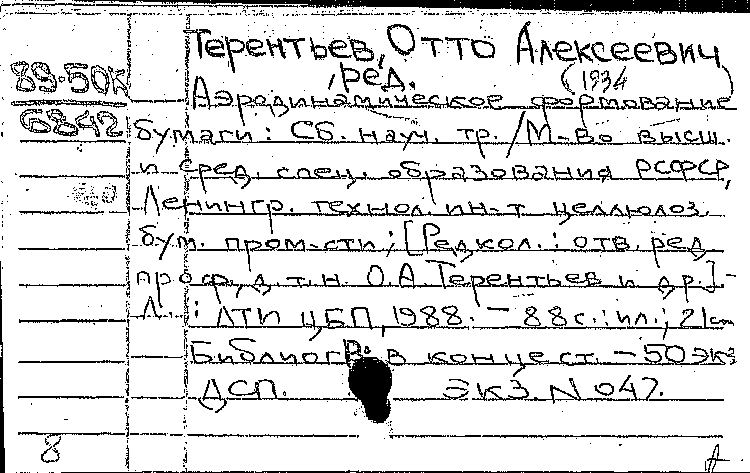 Терентьев, Отто Алексеевич
, ред. (1934 )
89-50к
6842
Аэродинамическое формование
бумаги: Сб. науч. тр. / М-во высш.
и сред. спец. образования РСФСР,
Ленингр. технол. ин-т целлюлоз.
бум. пром-сти; [Редкол.: отв. ред.
проф., д.т.н. О.А. Терентьев и др.].-
Л.: ЛТИ ЦБП, 1988. - 88 с.: ил.; 21 cm
Библиогр. в конце ст. - 50 экз
ДСП. ЭКЗ. N 047.
8